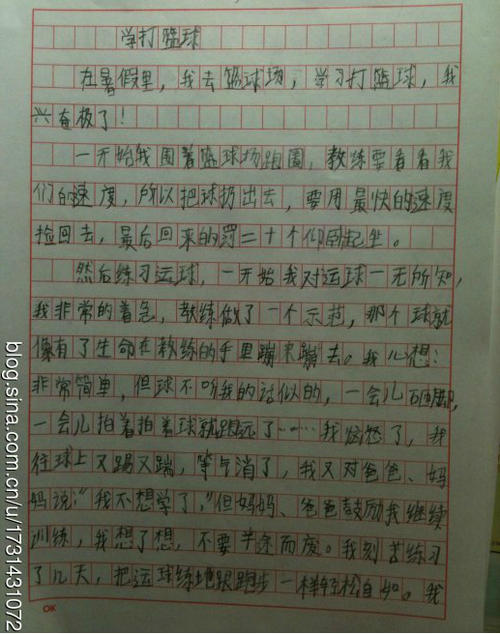 学打篮球
在暑假里，我去篮球场，学习打篮球，我
兴奋极了！
一开始我围着篮球场跑圈，教练要看看我
们的速度，所以把球扔出去，要用最快的速度
捡回去，最后回来的罚二十个仰卧起坐。
然后练习运球，一开始我对运球一无所知，
我非常的着急，教练做了一个示范，那个球就
像有了生命在教练的手里蹦来蹦去。我心想：
非常简单，但球不听我的话似的，一会儿砸脚，
一会儿拍着拍着球就跑远了……我恼怒了，我
往球上又踢又踹，等气消了，我又对爸爸、妈
妈说：“我不想学了，”但妈妈、爸爸鼓励我继续
训练，我想了想，不要半途而废。我刻苦练习
了几天，把运球练地跟跑步一样轻松自如。我
OK
blog.sina.com.cn/u/1731431072